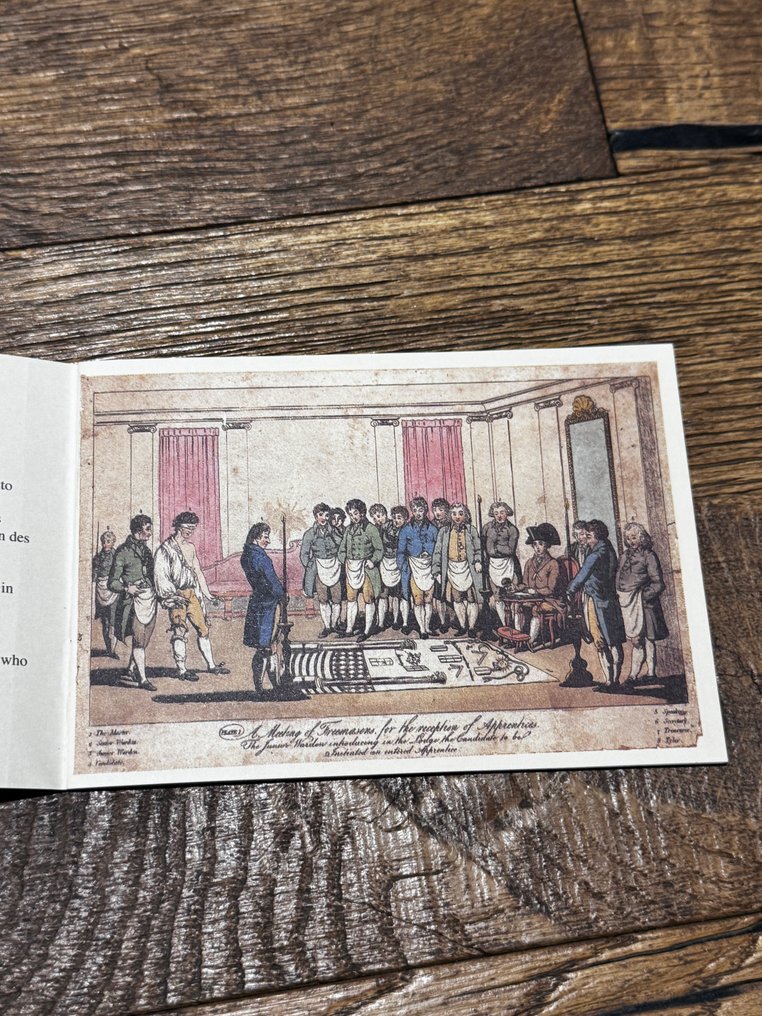 to
n des
in
who
PLATE 1
A Meeting of Freemasons, for the reception of Apprentices.
The Junior Warden introducing in the Lodge the Candidate to be
Initiated an entered Apprentice
1 The Master.
2 Senior Warden
3 Junior Warden
4 Candidate.
5 Speaker
6 Secretary
7 Treasurer
8 Tyler.